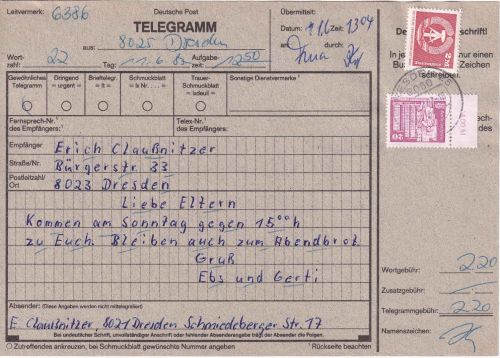 Leitvermerk: 6386
Deutsche Post
TELEGRAMM
Übermittelt:
aus: 8025 Dresden
Wortzahl: 22
Tag: 11.6.83
Aufgabezeit: 1250
Zeit: 1304
an:
durch:
Gewöhnliches Telegramm
Dringend = urgent =
Brieftelegr. = lt =
Schmuckblatt = lx Nr. ... =
Trauer-Schmuckblatt = lxdeuil =
Sonstige Dienstvermerke
Fernsprech-Nr. des Empfängers:
Telex-Nr. des Empfängers:
Empfänger Erich Claußnitzer
Straße/Nr. Bürgerstr. 33
Postleitzahl/Ort 8023 Dresden
Liebe Eltern
Kommen am Sonntag gegen 15ººh
zu Euch. Bleiben auch zum Abendbrot.
Gruß
Ebs und Gerti
Absender: (Diese Angaben werden nicht mittelegrafiert)
E. Claußnitzer, 8021 Dresden Schmiedeberger Str. 17
Bei undeutlicher Schrift, unvollständiger Anschrift oder fehlender Absenderangabe trägt der Absender die Folgen.
Zutreffendes ankreuzen, bei Schmuckblatt gewünschte Nummer angeben
¹ Rückseite beachten
schrift!
In je
Zeichen
schreiben.
Wortgebühr: 2,20
Zusatzgebühr:
Telegrammgebühr: 2,20
Namenszeichen: